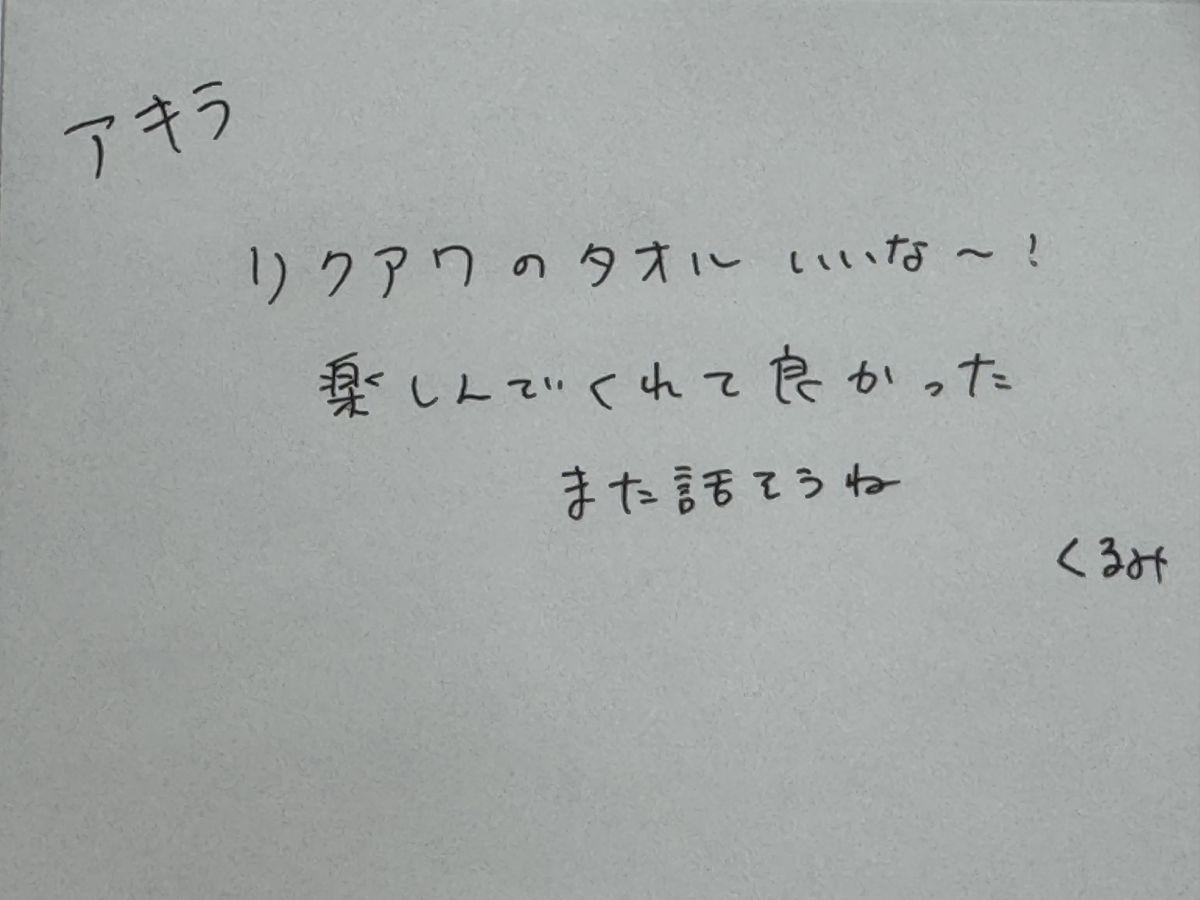 アキラ
リクアワのタオルいいな〜!
楽しんでくれて良かった
また話そうね
くるみ